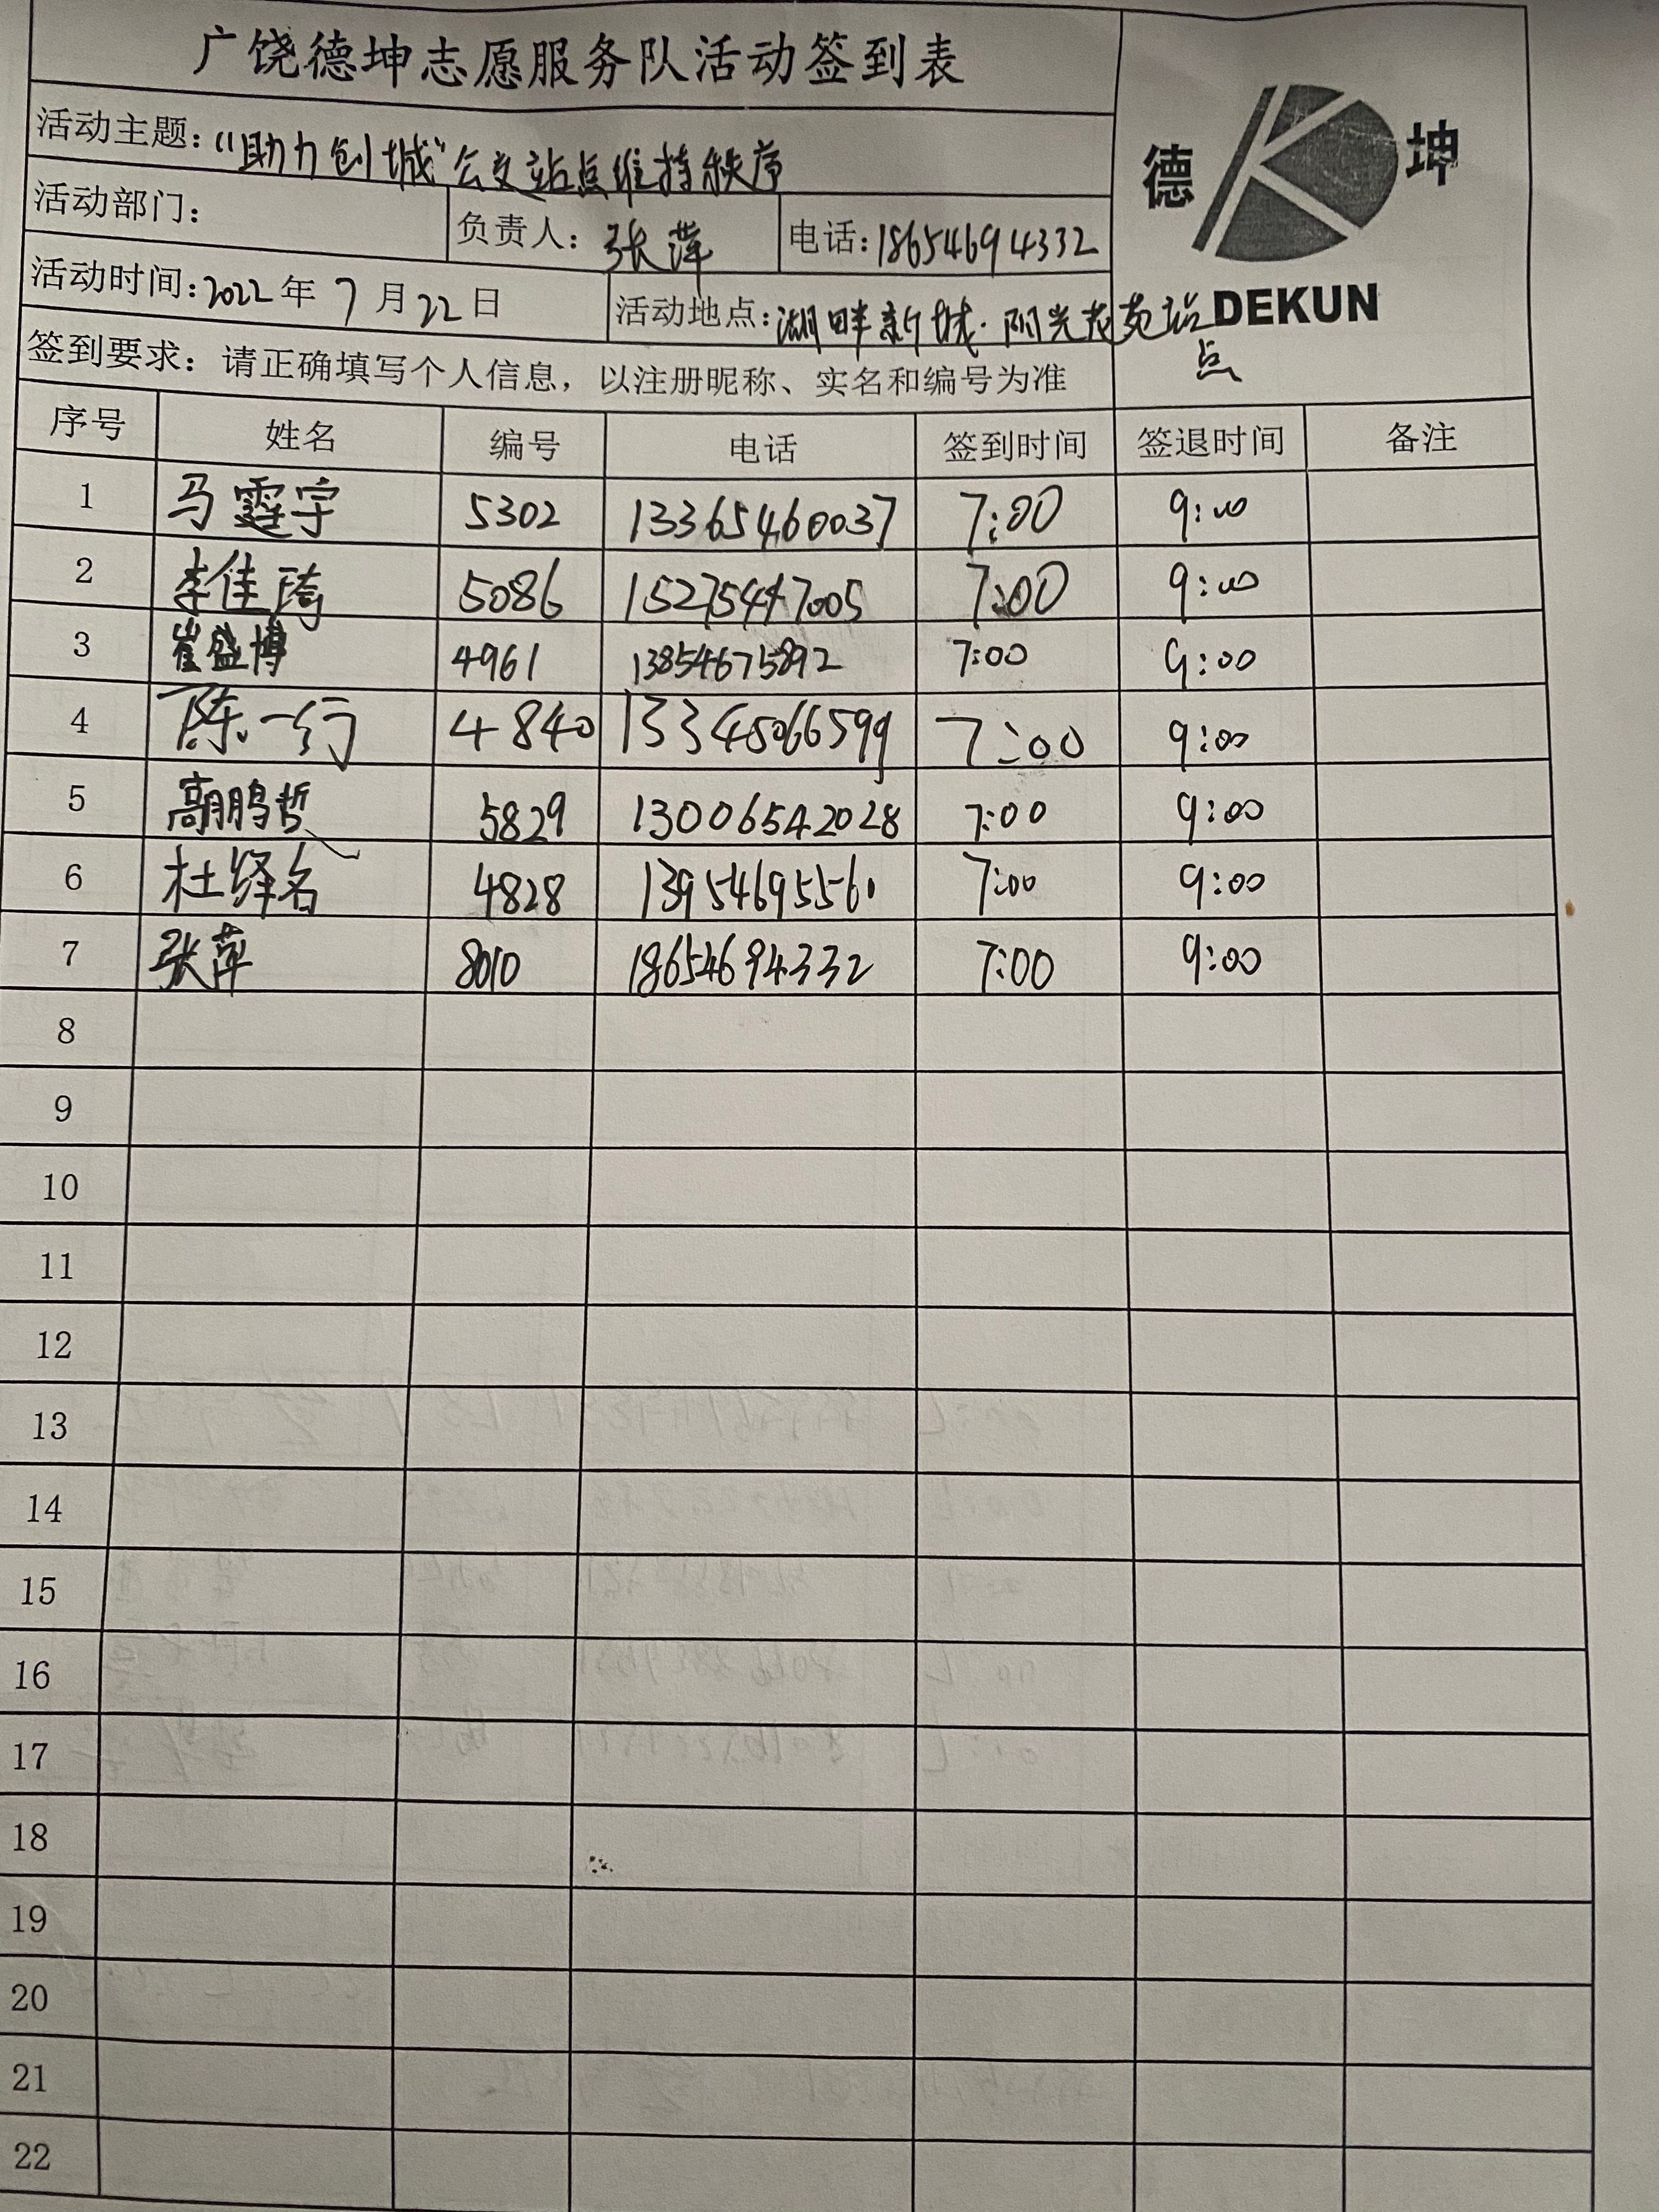 广饶德坤志愿服务队活动签到表
德 坤
DEKUN
活动主题：“助力创城”公交站点维持秩序
活动部门： 负责人：张萍 电话：18654694332
活动时间：2022年7月22日 活动地点：湖畔新城·阳光花苑站点
签到要求：请正确填写个人信息，以注册昵称、实名和编号为准
序号 姓名 编号 电话 签到时间 签退时间 备注
1 马霆宇 5302 13365460037 7:00 9:00
2 李佳琦 5086 15275447005 7:00 9:00
3 崔盛博 4961 13854675892 7:00 9:00
4 陈一行 4840 13345066599 7:00 9:00
5 高鹏哲 5829 13006542028 7:00 9:00
6 杜绎名 4828 13954695560 7:00 9:00
7 张萍 8010 18654694332 7:00 9:00
8
9
10
11
12
13
14
15
16
17
18
19
20
21
22